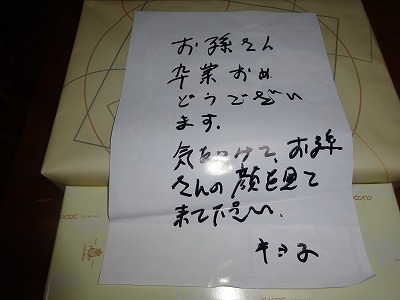 お孫さん
卒業おめ
どうでざい
ます.
気をつけて、お孫
さんの顔を見て
来て下さい、
キヨ子